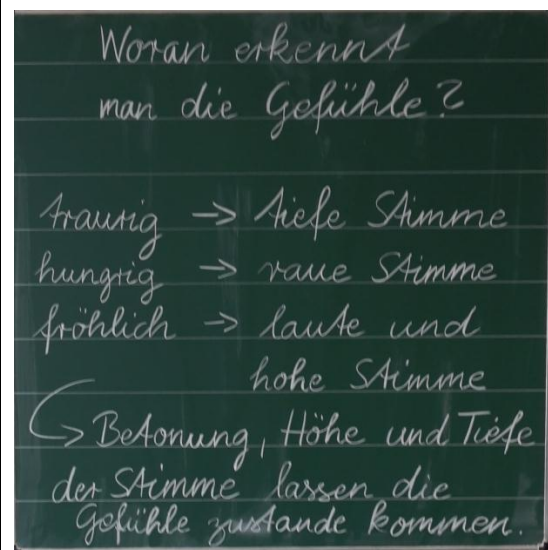 Woran erkennt
man die Gefühle?
traurig → tiefe Stimme
hungrig → raue Stimme
fröhlich → laute und
hohe Stimme
→ Betonung, Höhe und Tiefe
der Stimme lassen die
Gefühle zustande kommen.